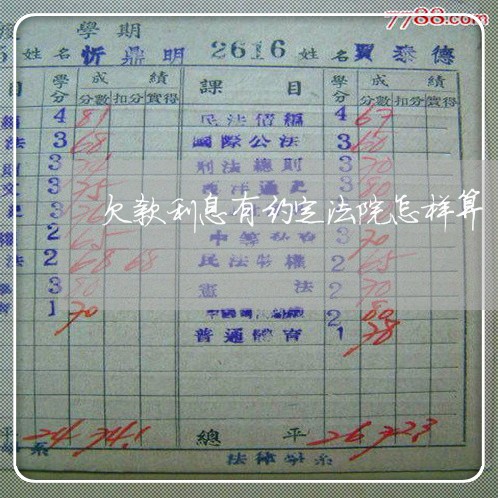 7788.com
學期
姓名 忻鼎明 2616 姓名 賈泰德
目 學分 成績 課目 學分 成績
分數 扣分 實得 分數 扣分 實得
4 81 民法債編 4 67
法 3 68 國際公法 3 60
3 刑法總則 3 70
3 75 3 80
欠款利息有约定法院怎样算
2 65 3 70
法 2 68 68 民法物權 2 65
3 80 憲法 2 70
1 70 2 80
普通體育 1 78
平 24 74.1 總平 26 72.3
系 法律學系